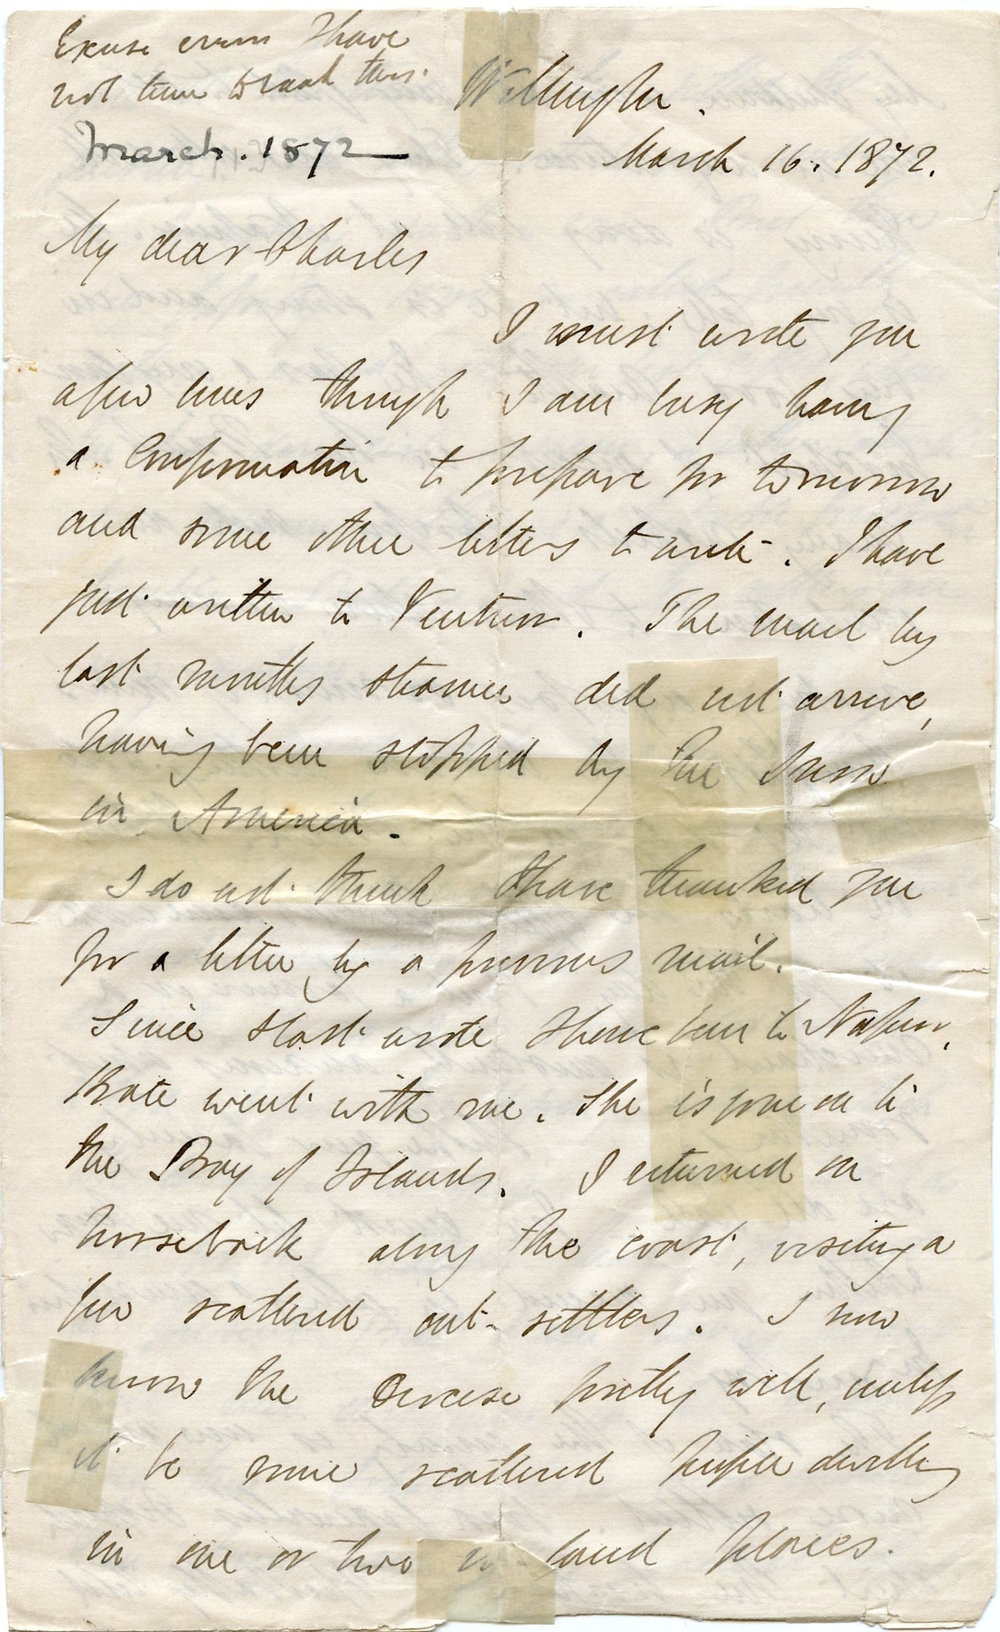 Excuse errors I have
not time to read this.
March. 1872
Wellington.
March 16. 1872.
My dear Charles
I must write you
a few lines though I am busy having
a Confirmation to prepare for tomorrow
and some other letters to write. I have
just written to Ventnor. The mail by
last months steamer did not arrive,
having been stopped by the snow
in America.
I do not think I have thanked you
for a letter by a previous mail.
Since I last wrote I have been to Napier,
Kate went with me. She is gone on to
the Bay of Islands. I returned on
horseback along the coast, visiting a
few scattered out-settlers. I now
know the Diocese pretty well, unless
it be some scattered people dwelling
in one or two in-land places.